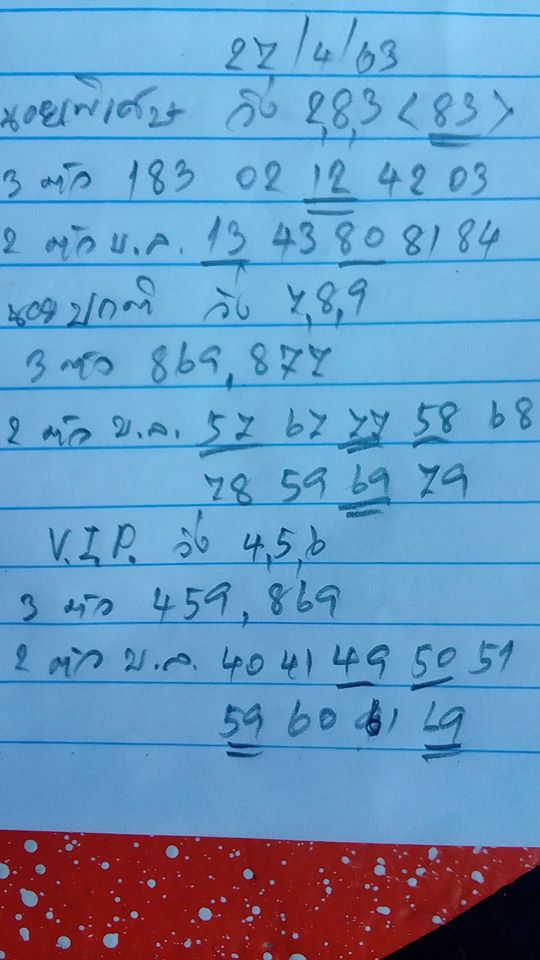 27/4/63
ฮานอยพิเศษ วิ่ง 2,8,3 <83>
3 ตัว 183 02 12 42 03
2 ตัว บ.ล. 13 43 80 81 84
ฮานอยปกติ วิ่ง 7,8,9
3 ตัว 869, 877
2 ตัว บ.ล. 57 67 77 58 68
78 59 69 79
V.I.P. วิ่ง 4,5,6
3 ตัว 459, 869
2 ตัว บ.ล. 40 41 49 50 51
59 60 61 69